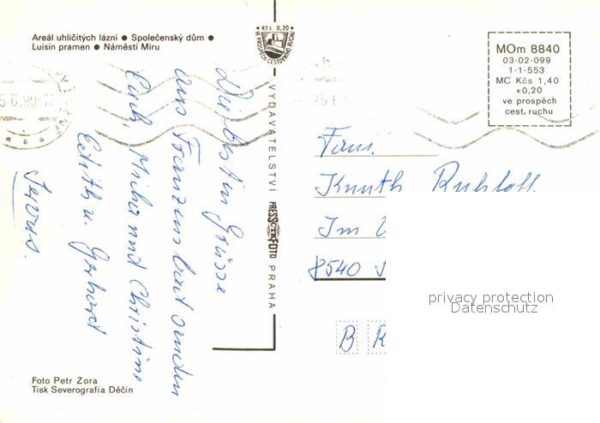 Areál uhličitých lázní ● Společenský dům ●
Luisin pramen ● Náměstí Míru
Kčs 0,20
VE PROSPĚCH CESTOVNÍHO RUCHU
MOm 8840
03-02-099
1-1-553
MC Kčs 1,40
+0,20
ve prospěch
cest. ruchu
Die besten Grüsse
aus Franzensbad senden
Euch, Micha und Christine
Edith u. Gerhard
VYDAVATELSTVÍ PRESSFOTO PRAHA
Fam.
Knuth
Im
8540
B R
privacy protection
Datenschutz
Foto Petr Zora
Tisk Severografia Děčín